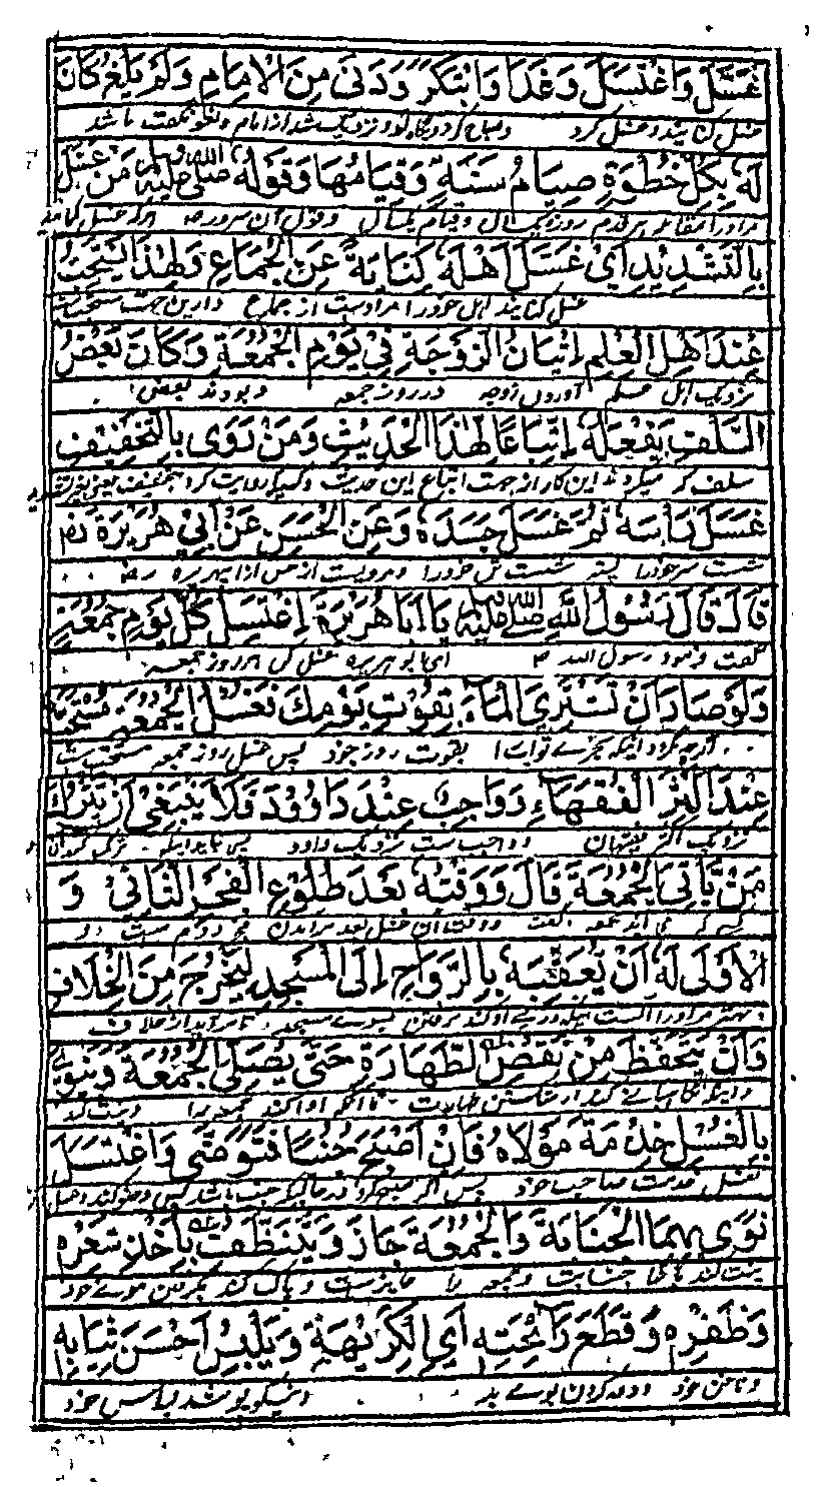 غَسَّلَ وَاغْتَسَلَ وَغَدَا وَابْتَكَرَ وَدَنٰى مِنَ الْاِمَامِ وَلَمْ يَلْغُ كَانَ
غسل کنانید و غسل کرد و صباح کرد و پگاه بود و نزدیک شد از امام و لغو نگفت باشد
لَهٗ بِكُلِّ خُطْوَةٍ صِيَامُ سَنَةٍ وَقِيَامُهَا وَقَوْلُهٗ صلى الله عليه وسلم مَنْ غَسَّلَ
مر او را بمقابله هر قدم روزه یکسال و قیام یکسال و قول آن سرور صہ هرکه غسل کنانید
بِالتَّشْدِيْدِ اَىْ غَسَّلَ اَهْلَهٗ كِنَايَةً عَنِ الْجِمَاعِ وَلِهٰذَا يُسْتَحَبُّ
غسل کنانید اهل خود را مراد است از جماع و ازین جهت مستحب است
عِنْدَ اَهْلِ الْعِلْمِ اِتْيَانُ الزَّوْجَةِ فِيْ يَوْمِ الْجُمُعَةِ وَكَانَ بَعْضُ
نزدیک اهل علم آوردن زوجه در روز جمعه و بودند بعضی
السَّلَفِ يَفْعَلُهٗ اِتِّبَاعًا لِهٰذَا الْحَدِيْثِ وَمَنْ رَوٰى بِالتَّخْفِيْفِ
سلف که میکردند این کار از جهت اتباع این حدیث و کسیکه روایت کرد بتخفیف یعنی بغیر تشدید
غَسَلَ رَأسَهٗ ثُمَّ غَسَلَ جَسَدَهٗ وَعَنِ الْحَسَنِ عَنْ اَبِيْ هُرَيْرَةَ رض
شست سر خود را پستر شست تن خود را و مرویست از حسن از ابی هریره رض
قَالَ قَالَ رَسُوْلُ اللّٰهِ صلى الله عليه يَا اَبَا هُرَيْرَةَ اِغْتَسِلْ كُلَّ يَوْمِ جُمُعَةٍ
گفت فرمود رسول الله صہ ای ابو هریره غسل کن هر روز جمعه
وَلَوْ صَارَ اَنْ تَشْتَرِيَ الْمَاءَ بِقُوْتِ يَوْمِكَ فَغُسْلُ الْجُمُعَةِ مُسْتَحَبٌّ
اگرچه گردد اینکه بخری تو آب را بقوت روز خود پس غسل روز جمعه مستحب است
عِنْدَ اَكْثَرِ الْفُقَهَاءِ وَوَاجِبٌ عِنْدَ دَاوُوْدَ فَلَا يَنْبَغِيْ اَنْ يَتْرُكَ
نزدیک اکثر فقیهان و واجب است نزدیک داود پس نباید اینکه ترک کند آن
مَنْ يَّأتِى الْجُمُعَةَ قَالَ وَوَقْتُهٗ بَعْدَ طُلُوْعِ الْفَجْرِ الثَّانِيْ وَ
کسیکه می آید جمعه گفت و وقت آن غسل بعد برآمدن فجر دوم است و
الْاَوْلٰى لَهٗ اَنْ يُّعَقِّبَهٗ بِالرَّوَاحِ اِلَى الْمَسْجِدِ لِيَخْرُجَ مِنَ الْخِلَافِ
بهتر مر او را آنست اینکه در پی او کند برفتن بسوی مسجد تا برآید از خلاف
وَاَنْ يَّتَحَفَّظَ مِنْ نَقْضِ الطَّهَارَةِ حَتّٰى يُصَلِّيَ الْجُمُعَةَ وَيَنْوِيَ
و اینکه نگاهبانی کند از شکستن طهارت تا آنکه ادا کند جمعه را و نیت کند
بِالْغُسْلِ خِدْمَةَ مَوْلَاهُ فَاِنْ اَصْبَحَ جُنُبًا فَتَوَضّٰى وَاغْتَسَلَ
بغسل خدمت صاحب خود پس اگر صبح کرد در حالیکه جنب باشد پس وضو کند و غسل
نَوٰى بِهِمَا الْجَنَابَةَ وَالْجُمُعَةَ جَازَ وَيَتَنَظَّفُ بِاَخْذِ شَعْرِهٖ
نیت کند بآنها جنابت و جمعه را جایز است و پاک کند بگرفتن موی خود
وَظُفْرِهٖ وَقَطْعِ رَائِحَتِهٖ اَيِ الْكَرِيْهَةِ وَيَلْبَسُ اَحْسَنَ ثِيَابِهٖ
و ناخن خود و دور کردن بوی بد و نیکو پوشد لباس خود